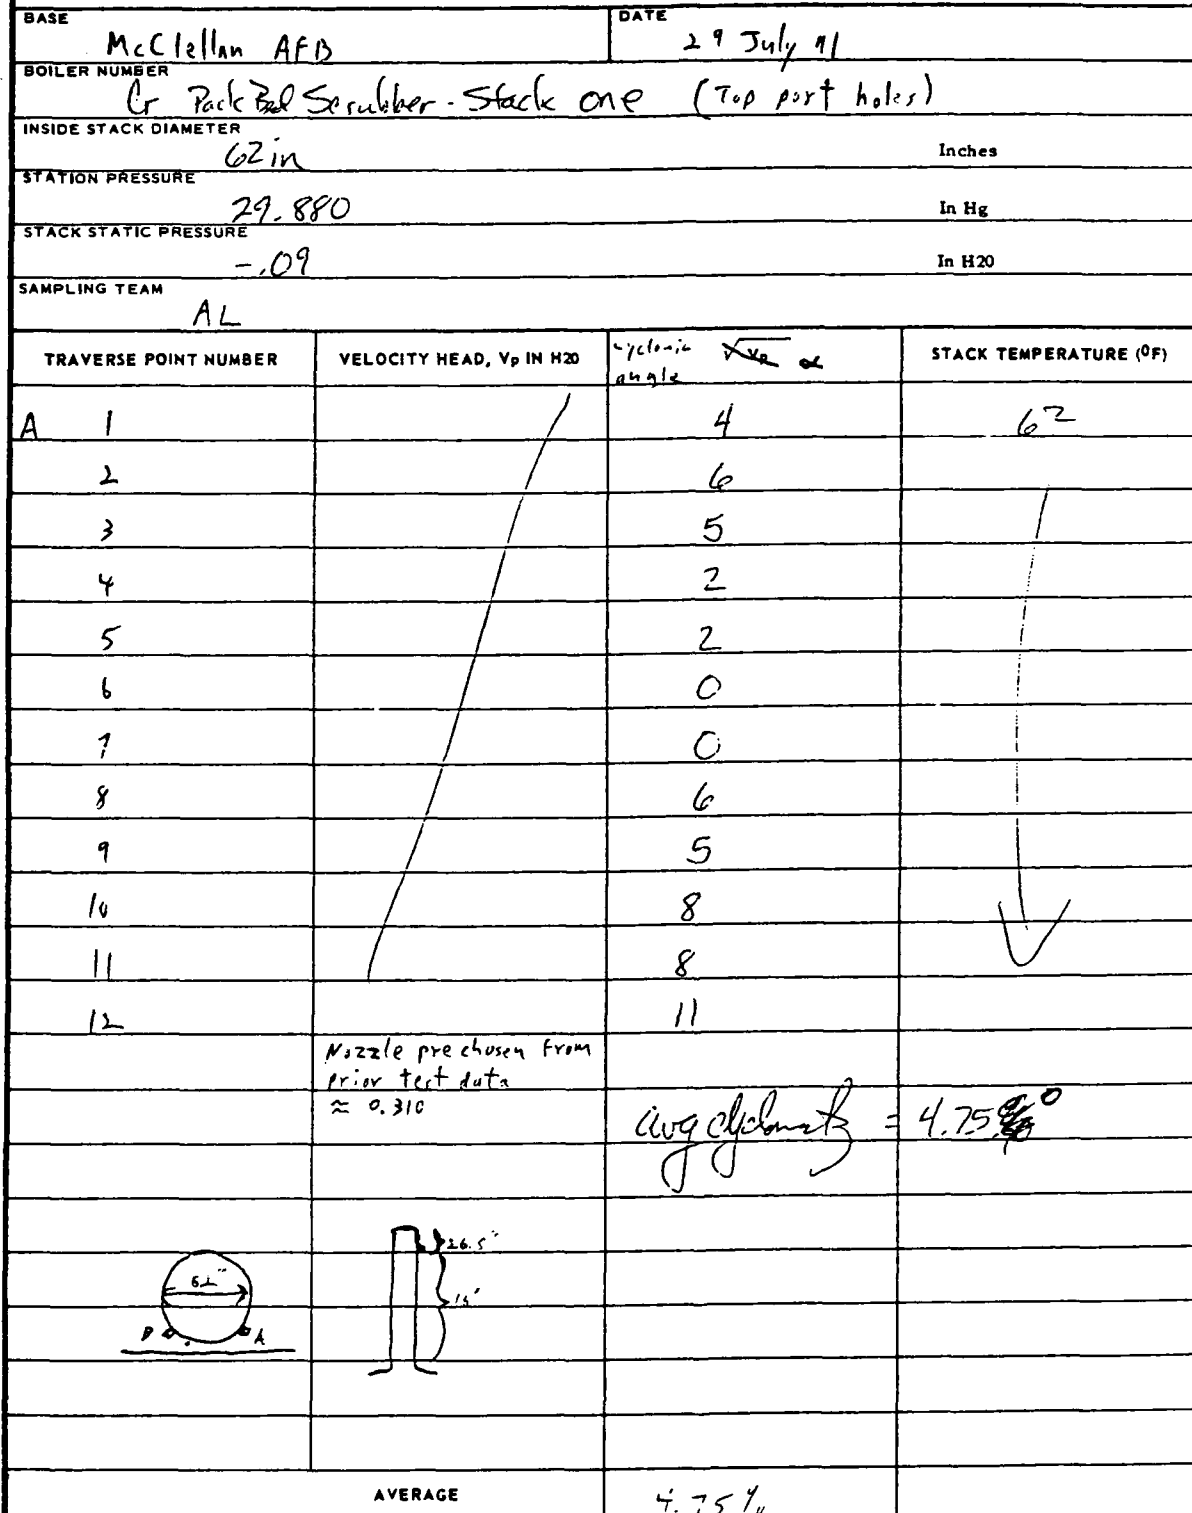 BASE DATE
McClellan AFB 29 July 91
BOILER NUMBER
Cr Pack Bed Scrubber - Stack one (Top port holes)
INSIDE STACK DIAMETER
62 in Inches
STATION PRESSURE
29.880 In Hg
STACK STATIC PRESSURE
-.09 In H20
SAMPLING TEAM
AL
TRAVERSE POINT NUMBER VELOCITY HEAD, Vp IN H20 cyclonic angle √Vp α STACK TEMPERATURE (°F)
A 1 4 62
2 6
3 5
4 2
5 2
6 0
7 0
8 6
9 5
10 8
11 8
12 11
Nozzle pre chosen from
prior test data
≈ 0.310
avg = 4.75°
26.5"
62"
15'
B A
AVERAGE 4.75%